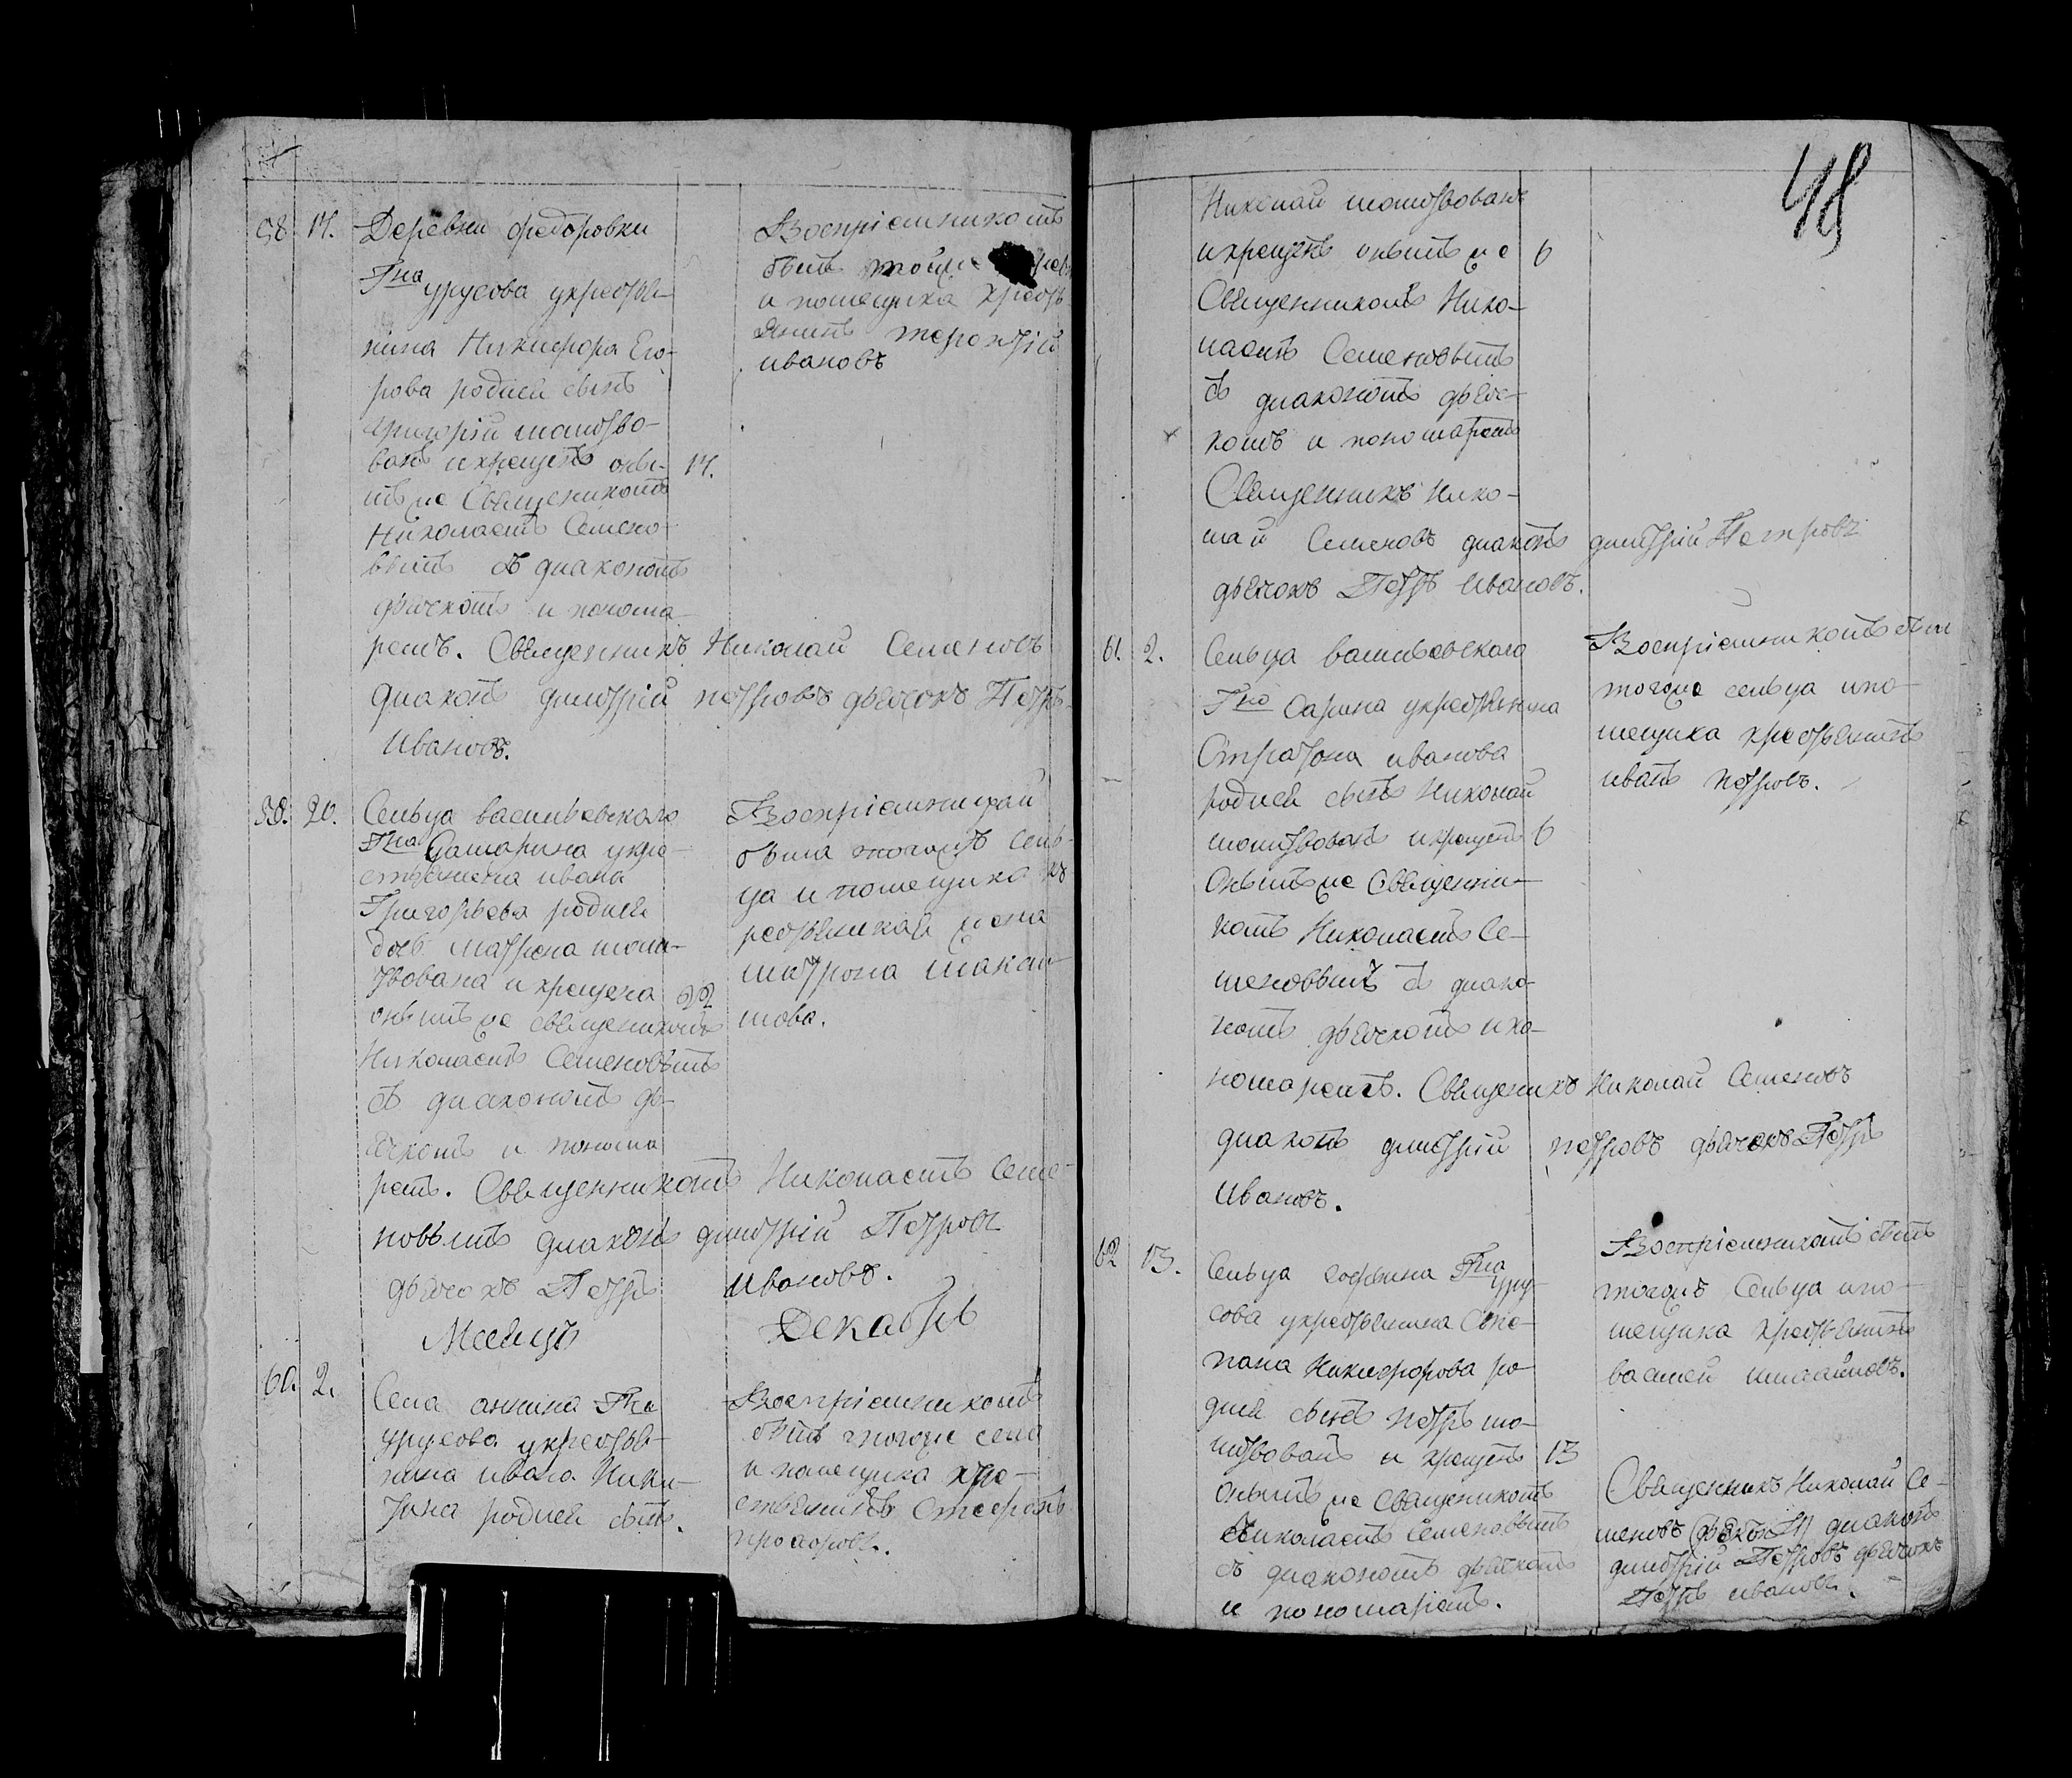 58 17. Деревни федоровки
Гна урусова укрестья-
нина Никифора Его-
рова родися сынъ
григорій молитво-
ванъ икрещенъ оны- 17.
мъ же Священикомъ
Николаемъ Семено-
вымъ съ диакономъ
дьячкомъ и понома-
ремъ. Священникъ Николай Семеновъ
диаконъ димитрій петровъ дьячокъ Петръ
Ивановъ.
Воспріемникомъ
былъ тойже
и помещика кресть
янинъ терентій
ивановъ
59. 20. Сельца васильевскаго
Гна Самарина укре-
стьянина ивана
Григорьева родися
дочь матрона моли-
твована и крещена 22
онымъ же священикомъ
Николаемъ Семеновымъ
съ диакономъ дь-
ячкомъ и понома
ремъ. Священникомъ Николаемъ Семе-
новымъ диаконъ димитрій Петровъ
дьячокъ Петръ Ивановъ.
Воспріемницей
была тогожъ сель-
ца и помещика к
рестьянская жена
матрона
мова.
Месяцъ Декабрь
60. 2. Села аннина Гна
урусова укрестья-
нина ивана Ники-
тина родися сынъ.
Воспріемникомъ
былъ тогоже села
и помещика кре-
стьянинъ Стефанъ
48
Николай молитвованъ
икрещенъ онымъ же 6
Священникомъ Нико-
лаемъ Семеновымъ
съ диакономъ дьяч-
комъ и пономаремъ
Священникъ Нико-
лай Семеновъ диаконъ димитрій Петровъ
дьячокъ Петръ Ивановъ.
61. 2. Сельца васильевскаго
Гна Сарина укрестьянина
Стратона иванова
родися сынъ Николай
молитвованъ икрещенъ 6
Онымъ же Священни-
комъ Николаемъ Се-
меновымъ съ диако-
номъ дьячкомъ ипо-
номаремъ. Священикъ Николай Семеновъ
диаконъ димитрій петровъ дьячокъ Петръ
Ивановъ.
Воспріемникомъ былъ
тогоже сельца ипо-
мещика крестьянинъ
иванъ петровъ.
62 13. Сельца софьина Гна уру-
сова укрестьянина Сте-
пана Никифорова ро-
дися сынъ петръ мо-
литвованъ и крещенъ 13
онымъ же священикомъ
Николаемъ Семеновымъ
съ диакономъ дьячкомъ
и пономаремъ.
Воспріемникомъ былъ
тогожъ Сельца ипо-
мещика крестьянинъ
василей михайловъ.
Священникъ Николай Се-
меновъ диаконъ
димитрій Петровъ дьячокъ
Петръ ивановъ.